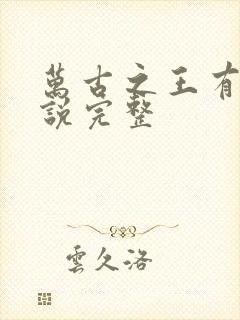 萬古之王有
說完整
雲久洛